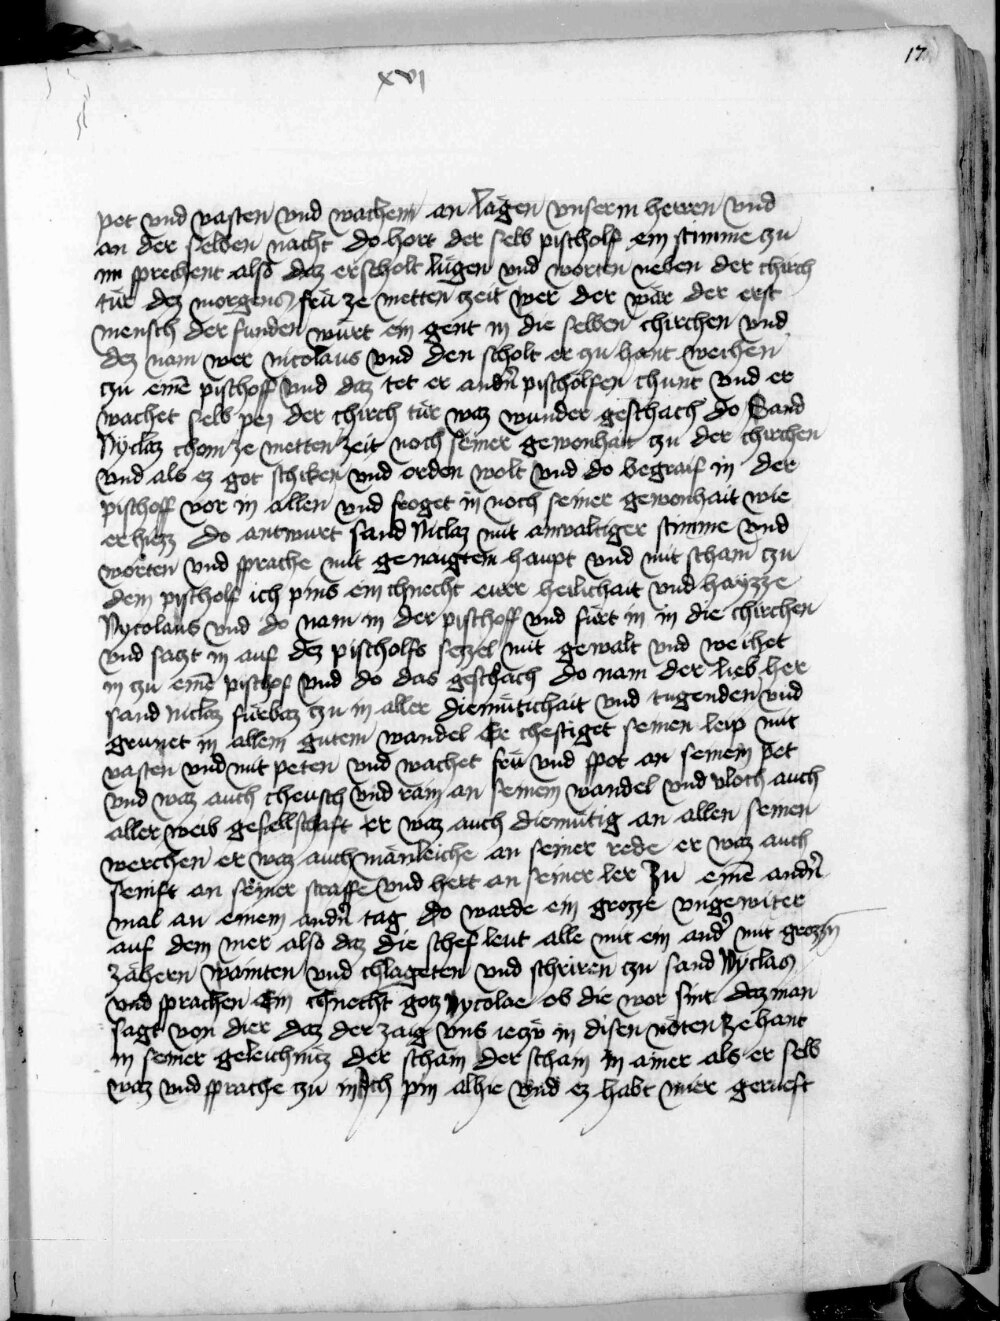 17
XVI
pot vnd vasten vnd wachem an lagen vnserm herren vnd
an der selben nacht do hort der selb pischolf ein stimme zu
im sprechent also daz er scholt lugen vnd worten neben der chirch
tür dez morgens früe ze metten zeit wer der wär der erst
mensch der funden würt ein gent in die selben chirchen vnd
dez nam wer nicolaus vnd den scholt er zu hant weihen
czu einē pischoff vnd daz tet er andn̄ pischolfen chunt vnd er
wachet selb pey der chirch tür waz wunder geschach do Sand
Nyclaz chom ze metten zeit noch seiner gewonhait zu der chirchen
vnd als ez got schiken vnd orden wolt vnd do begraif in der
pischoff vor in allen vnd froget in noch seiner gewonhait wie
er hiezz do antwurt sand Niclaz mit ainvaltiger stimme vnd
worten vnd sprache mit genaigtem haupt vnd mit scham zu
dem pischolf ich pins ein chnecht eurr heilichait vnd hayzze
Nycolaus vnd do nam in der pischoff vnd fürt in in die chirchen
vnd saczt in auf dez pischolfs sezzel mit gewalt vnd weihet
in zu einē pischof vnd do das geschach do nam der lieb her
sand Niclaz fürbaz zu in aller diemütichait vnd tugenden vnd
grunet in allem gutem wandel Er chestiget seinen leip mit
vasten vnd mit peten vnd wachet früe vnd spot an seinem pet
vnd waz auch cheusch vnd rain an seinem wandel vnd vloch auch
aller weib gesellschaft er waz auch diemütig an allen seinen
werchen er waz auch mänleiche an seiner rede er waz auch
senift an seiner straffe vnd hert an seiner ler Zu einē andn̄
mal an einem andn̄ tag do warde ein grozze vngewiter
auf dem mer also daz die schef leut alle mit ein and' mit grozzn̄
zähern wainten vnd chlageten vnd schriren zu sand Nyclas
vnd sprachen Ein chnecht gotz Nycolae ob die wor sint daz man
sagt von dier daz der zaig vns ieczů in disen nöten ze hant
in seiner geleichnüz der scham der scham in ainer als er selb
waz vnd sprache zu in Ich pin alhie vnd ez habt mier gerueft